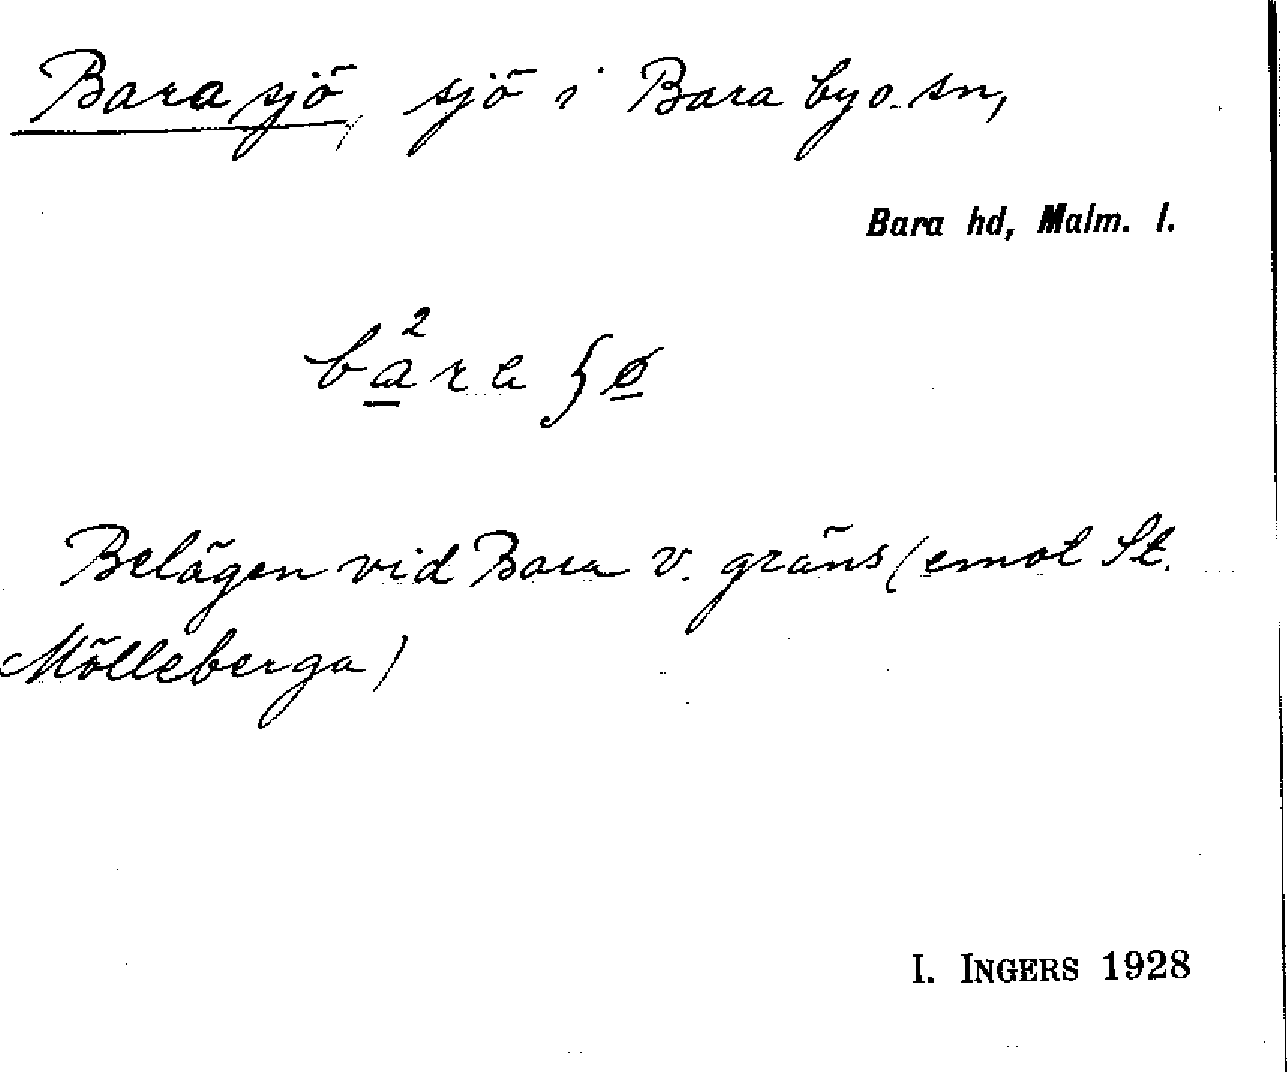 Bara sjö, sjö i Bara by o. sn,
Bara hd, Malm. l.
Belägen vid Bara v. gräns (emot St.
Mölleberga)
I. INGERS 1928